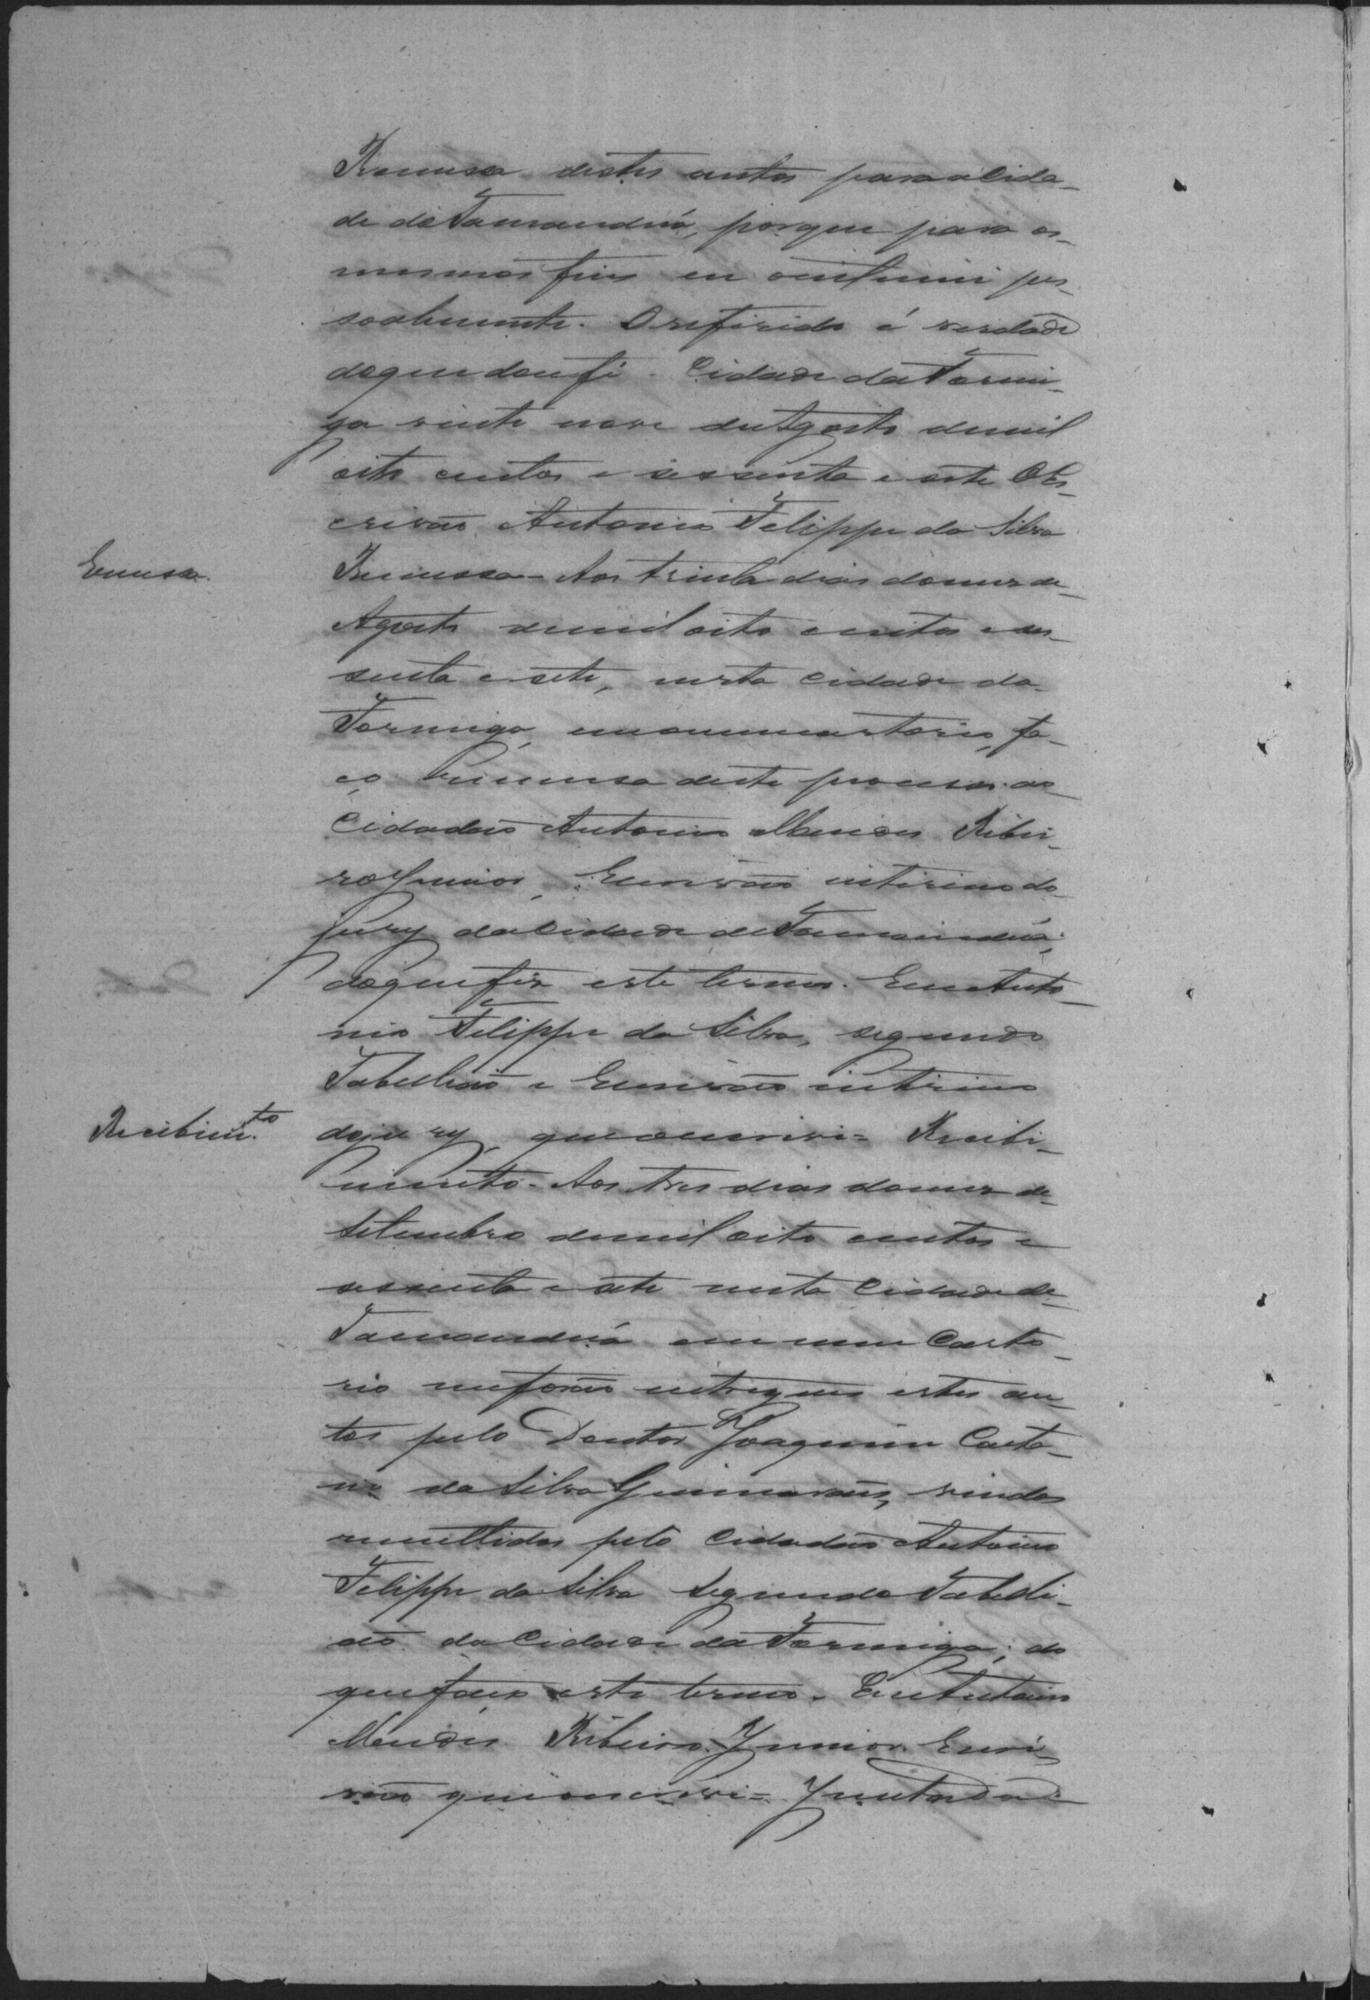 Remessa destes autos para a Cida-
de de Tamanduá, porque para os
mesmos fins eu o intimei pes-
soalmente. O referido é verdade
do que dou fé. Cidade da Formi-
ga vinte nove de Agosto de mil
oito centos e sessenta e sete O Es-
crivão Antonio Felippe da Silva
Remessa.
Remessa - Aos trinta dias do mez de
Agosto de mil oito centos e ses-
senta e sete, nesta Cidade da
Formiga, em o meu cartorio, fa-
ço remessa deste processo ao
Cidadão Antonio Mendes Ribei-
ro Junior, Escrivão interino do
jury da Cidade de Tamanduá;
do que fiz este termo. Eu Anto-
nio Felippe da Silva, segundo
Tabellião e Escrivão interino
Recebim.to
do jury que o escrevi = Recebi-
mento - Aos tres dias do mez de
Setembro de mil oito centos e
sessenta e sete nesta Cidade de
Tamanduá em meu Carto-
rio me forão entregues estes au-
tos pelo Doutor Joaquim Caeta-
no da Silva Guimarães, vindos
remettidos pelo Cidadão Antonio
Felippe da Silva Segundo Tabelli-
ão da Cidade da Formiga; do
que faço este termo. Eu Antonio
Mendes Ribeiro Junior Escri-
vão que o escrevi = Juntada